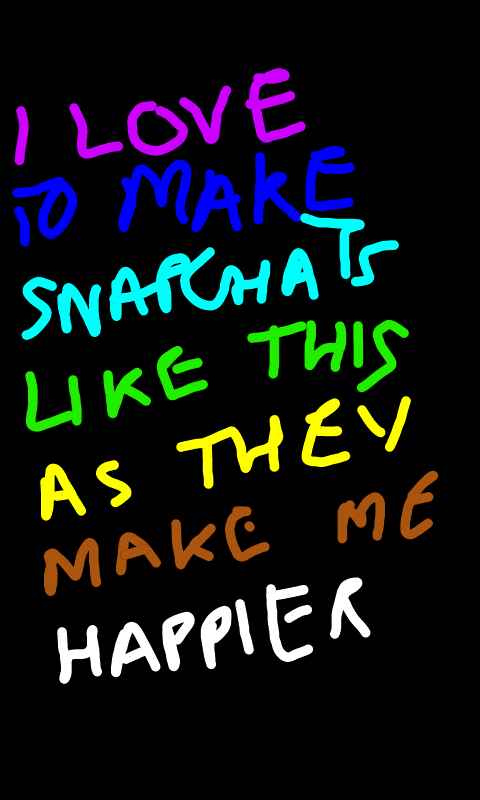 I LOVE
TO MAKE
SNAPCHATS
LIKE THIS
AS THEY
MAKE ME
HAPPIER